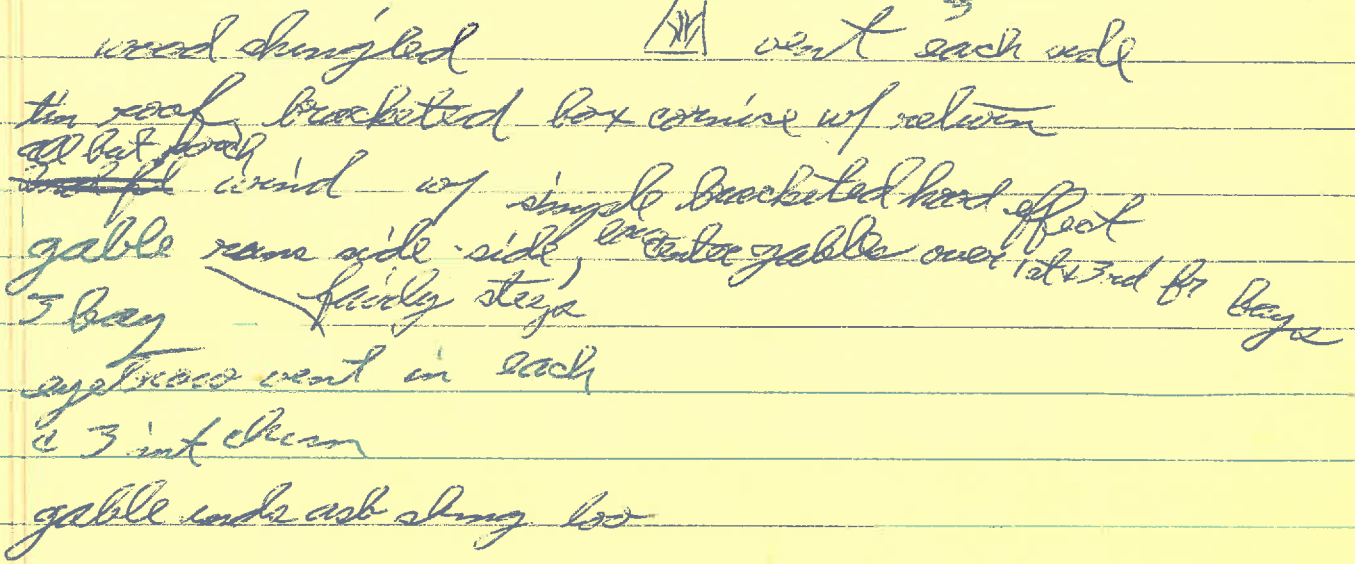 wood shingled vent each side
tin roof, bracketed box cornise w/ return
all but porch
wind w/ simple bracketed hood effect
gable runs side-side, center gables over 1st & 3rd fr bays
fairly steep
3 bay
eyebrow vent in each
c 3 int chim
gable ends asb shng too